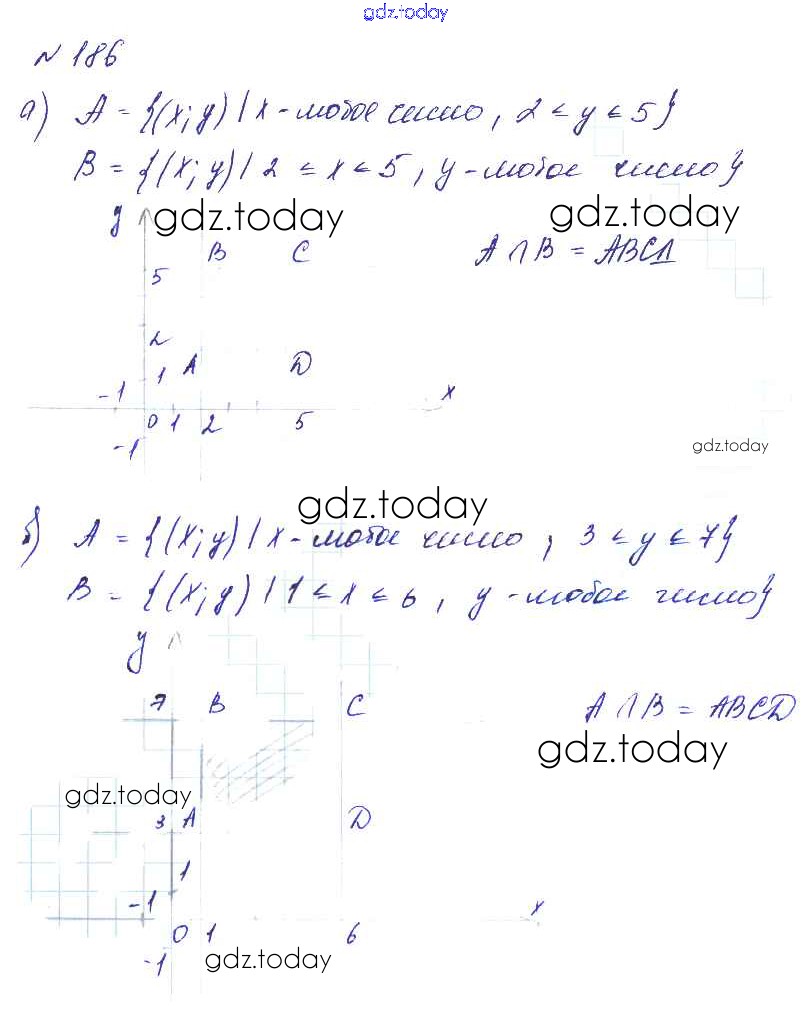 gdz.today
№ 186
а) A = {(x; y) | x - любое число, 2 ≤ y ≤ 5}
B = {(x; y) | 2 ≤ x ≤ 5, y - любое число}
y gdz.today gdz.today
B C A ∩ B = ABCD
5
2
1 A D
-1 x
0 1 2 5
-1 gdz.today
gdz.today
б) A = {(x; y) | x - любое число, 3 ≤ y ≤ 7}
B = {(x; y) | 1 ≤ x ≤ 6, y - любое число}
y
7 B C A ∩ B = ABCD
gdz.today
gdz.today
3 A D
1
-1 x
0 1 6
-1 gdz.today